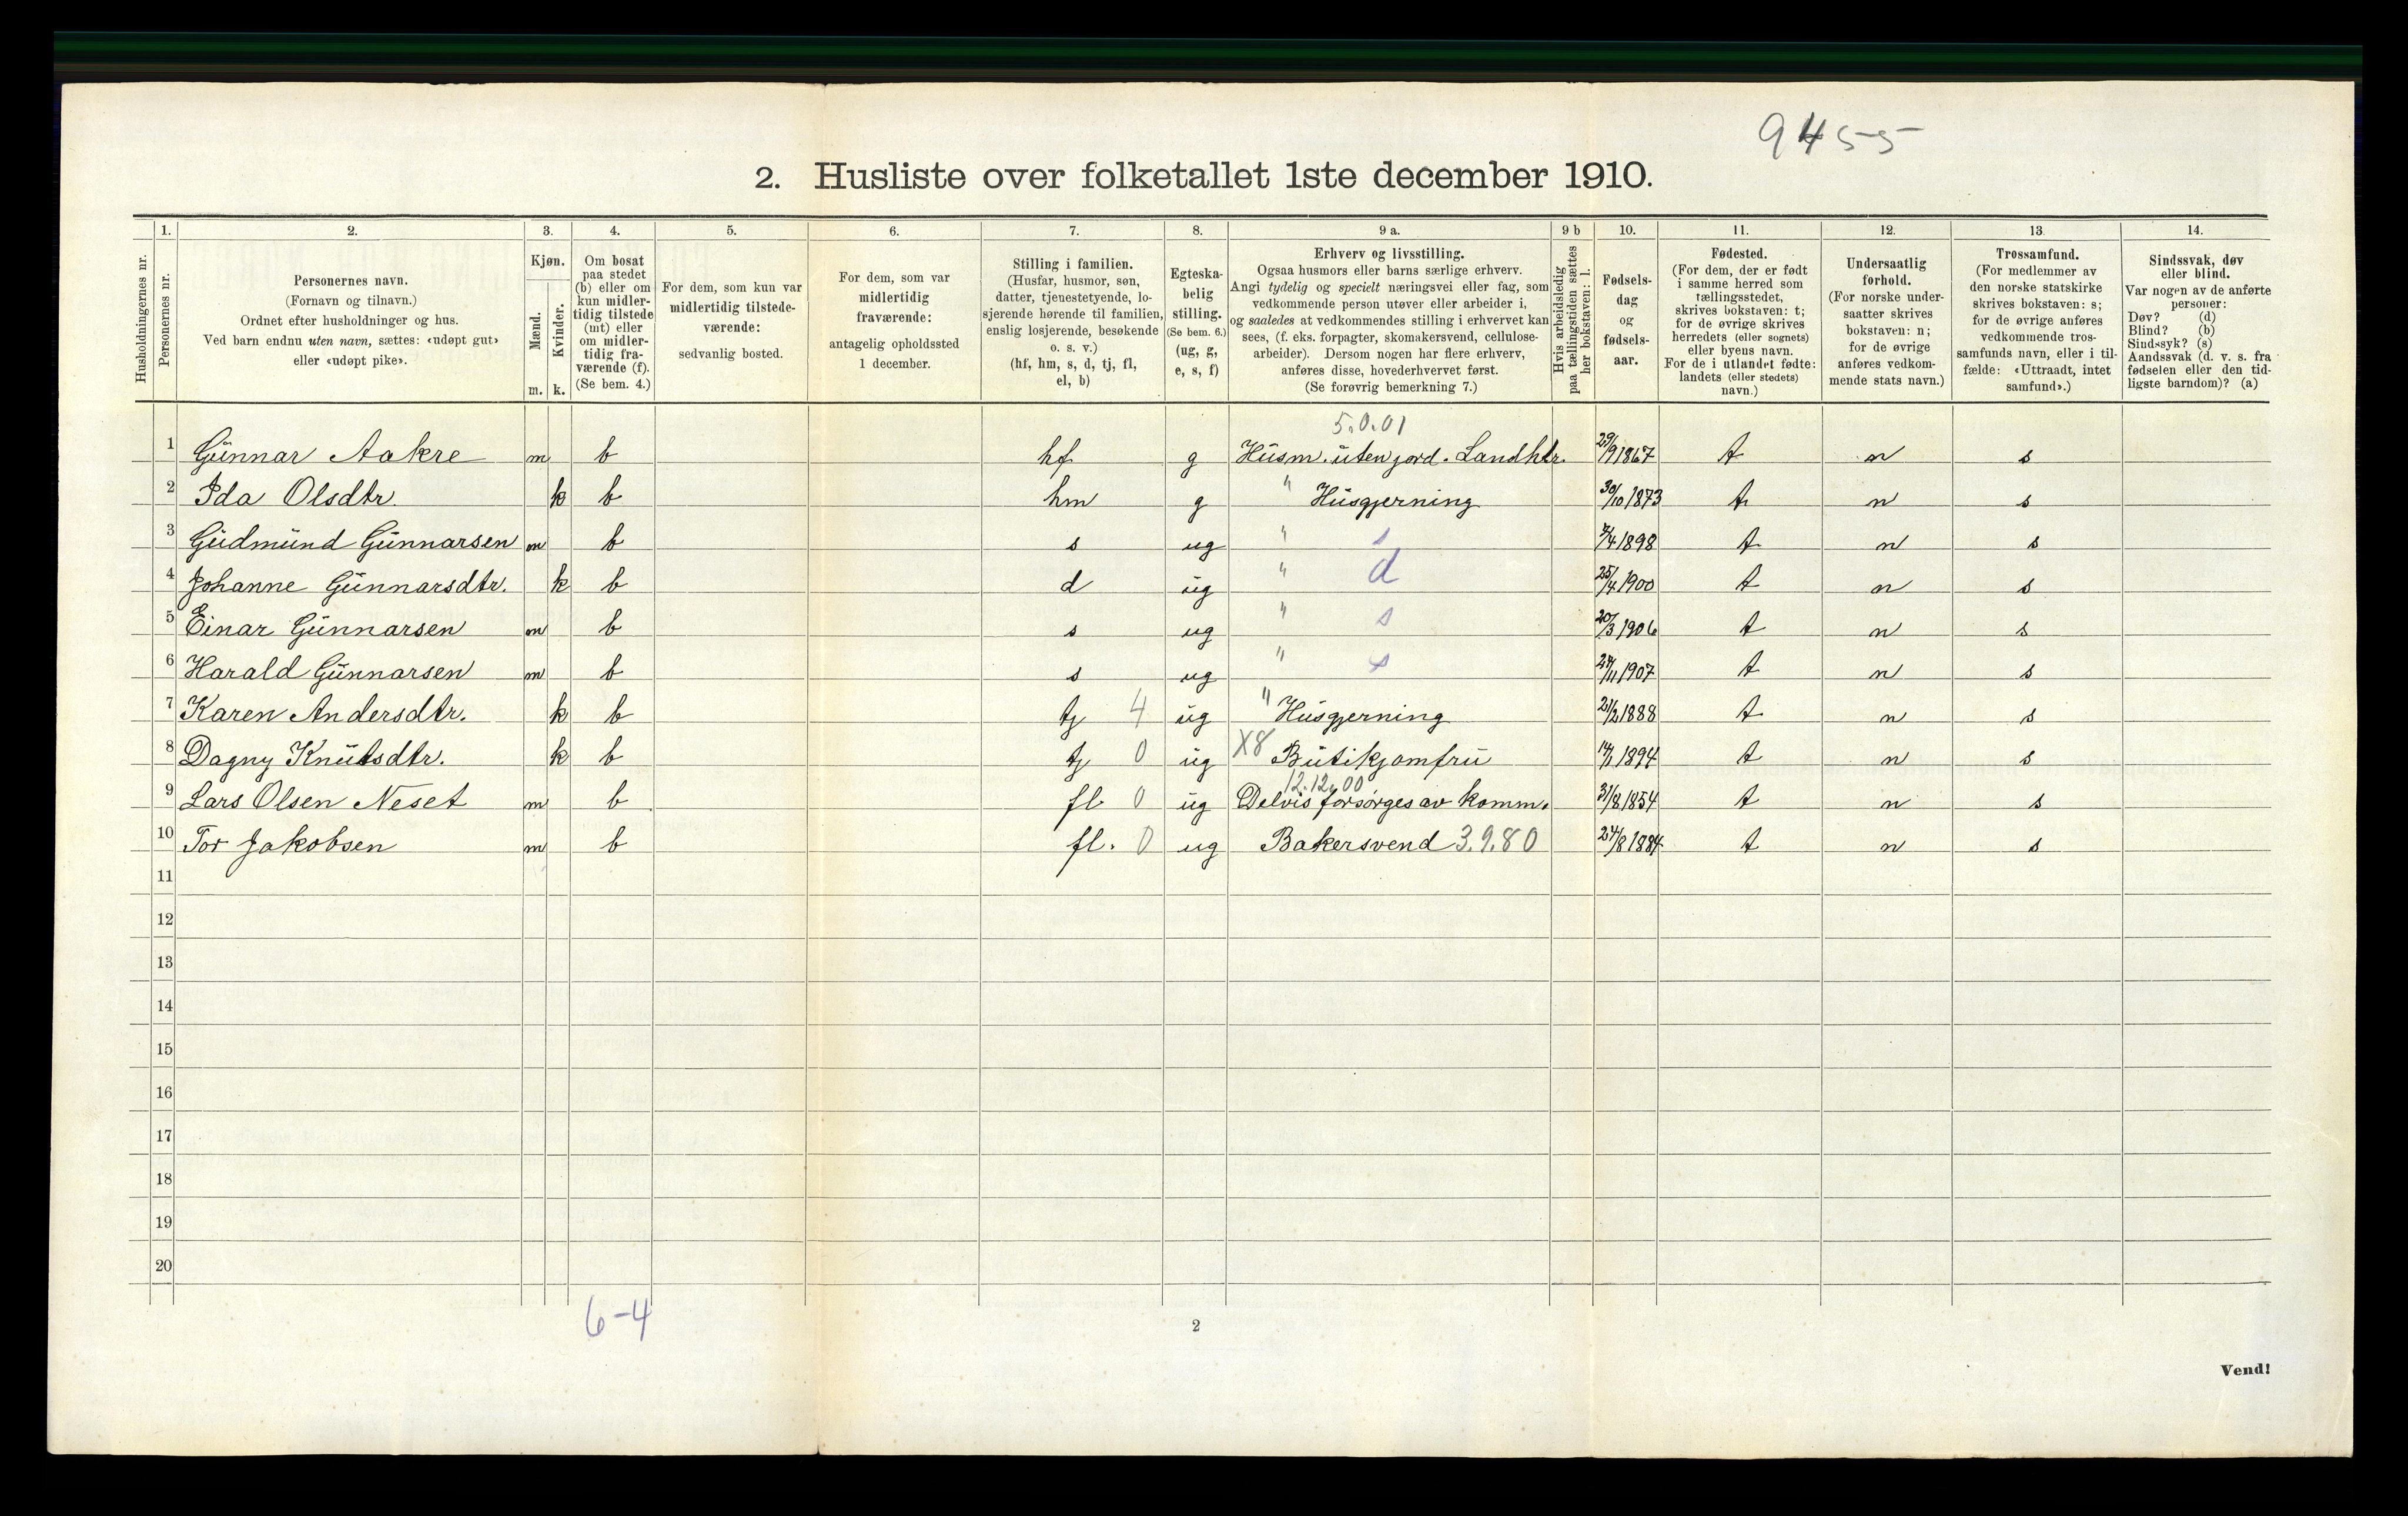 9455
2. Husliste over folketallet 1ste december 1910.
1. 2. 3. 4. 5. 6. 7. 8. 9 a. 9 b 10. 11. 12. 13. 14.
Husholdningernes nr.
Personernes nr.
Personernes navn.
(Fornavn og tilnavn.)
Ordnet efter husholdninger og hus.
Ved barn endnu uten navn, sættes: «udøpt gut»
eller «udøpt pike».
Kjøn.
Mænd.
Kvinder.
m. k.
Om bosat
paa stedet
(b) eller om
kun midler-
tidig tilstede
(mt) eller
om midler-
tidig fra-
værende (f).
(Se bem. 4.)
For dem, som kun var
midlertidig tilstede-
værende:
sedvanlig bosted.
For dem, som var
midlertidig
fraværende:
antagelig opholdssted
1 december.
Stilling i familien.
(Husfar, husmor, søn,
datter, tjenestetyende, lo-
sjerende hørende til familien,
enslig losjerende, besøkende
o. s. v.)
(hf, hm, s, d, tj, fl,
el, b)
Egteska-
belig
stilling.
(Se bem. 6.)
(ug, g,
e, s, f)
Erhverv og livsstilling.
Ogsaa husmors eller barns særlige erhverv.
Angi tydelig og specielt næringsvei eller fag, som
vedkommende person utøver eller arbeider i,
og saaledes at vedkommendes stilling i erhvervet kan
sees, (f. eks. forpagter, skomakersvend, cellulose-
arbeider). Dersom nogen har flere erhverv,
anføres disse, hovederhvervet først.
(Se forøvrig bemerkning 7.)
Hvis arbeidsledig
paa tællingstiden sættes
her bokstaven: l.
Fødsels-
dag
og
fødsels-
aar.
Fødested.
(For dem, der er født
i samme herred som
tællingsstedet,
skrives bokstaven: t;
for de øvrige skrives
herredets (eller sognets)
eller byens navn.
For de i utlandet fødte:
landets (eller stedets)
navn.)
Undersaatlig
forhold.
(For norske under-
saatter skrives
bokstaven: n;
for de øvrige
anføres vedkom-
mende stats navn.)
Trossamfund.
(For medlemmer av
den norske statskirke
skrives bokstaven: s;
for de øvrige anføres
vedkommende tros-
samfunds navn, eller i til-
fælde: «Uttraadt, intet
samfund».)
Sindssvak, døv
eller blind.
Var nogen av de anførte
personer:
Døv? (d)
Blind? (b)
Sindssyk? (s)
Aandssvak (d. v. s. fra
fødselen eller den tid-
ligste barndom)? (a)
5.0.01
1 Gunnar Aakre m b hf g Husm. uten jord. Landhtr. 29/9 1867 t n s
2 Ida Olsdtr. k b hm g " Husgjerning 30/10 1873 t n s
3 Gudmund Gunnarsen m b s ug " s 7/4 1898 t n s
4 Johanne Gunnarsdtr. k b d ug " d 25/4 1900 t n s
5 Einar Gunnarsen m b s ug " s 20/3 1906 t n s
6 Harald Gunnarsen m b s ug " s /11 1907 t n s
7 Karen Andersdtr. k b tj 4 ug " Husgjerning 21/2 1888 t n s
8 Dagny Knutsdtr. k b tj 0 ug X8 Butikjomfru 14/1 1894 t n s
12.12.00
9 Lars Olsen Neset m b fl 0 ug Delvis forsørges av komm. 31/8 1854 t n s
10 Tor Jakobsen m b fl. 0 ug Bakersvend 3.9.80 24/8 1884 t n s
11
12
13
14
15
16
17
18
19
20
6-4
2
Vend!